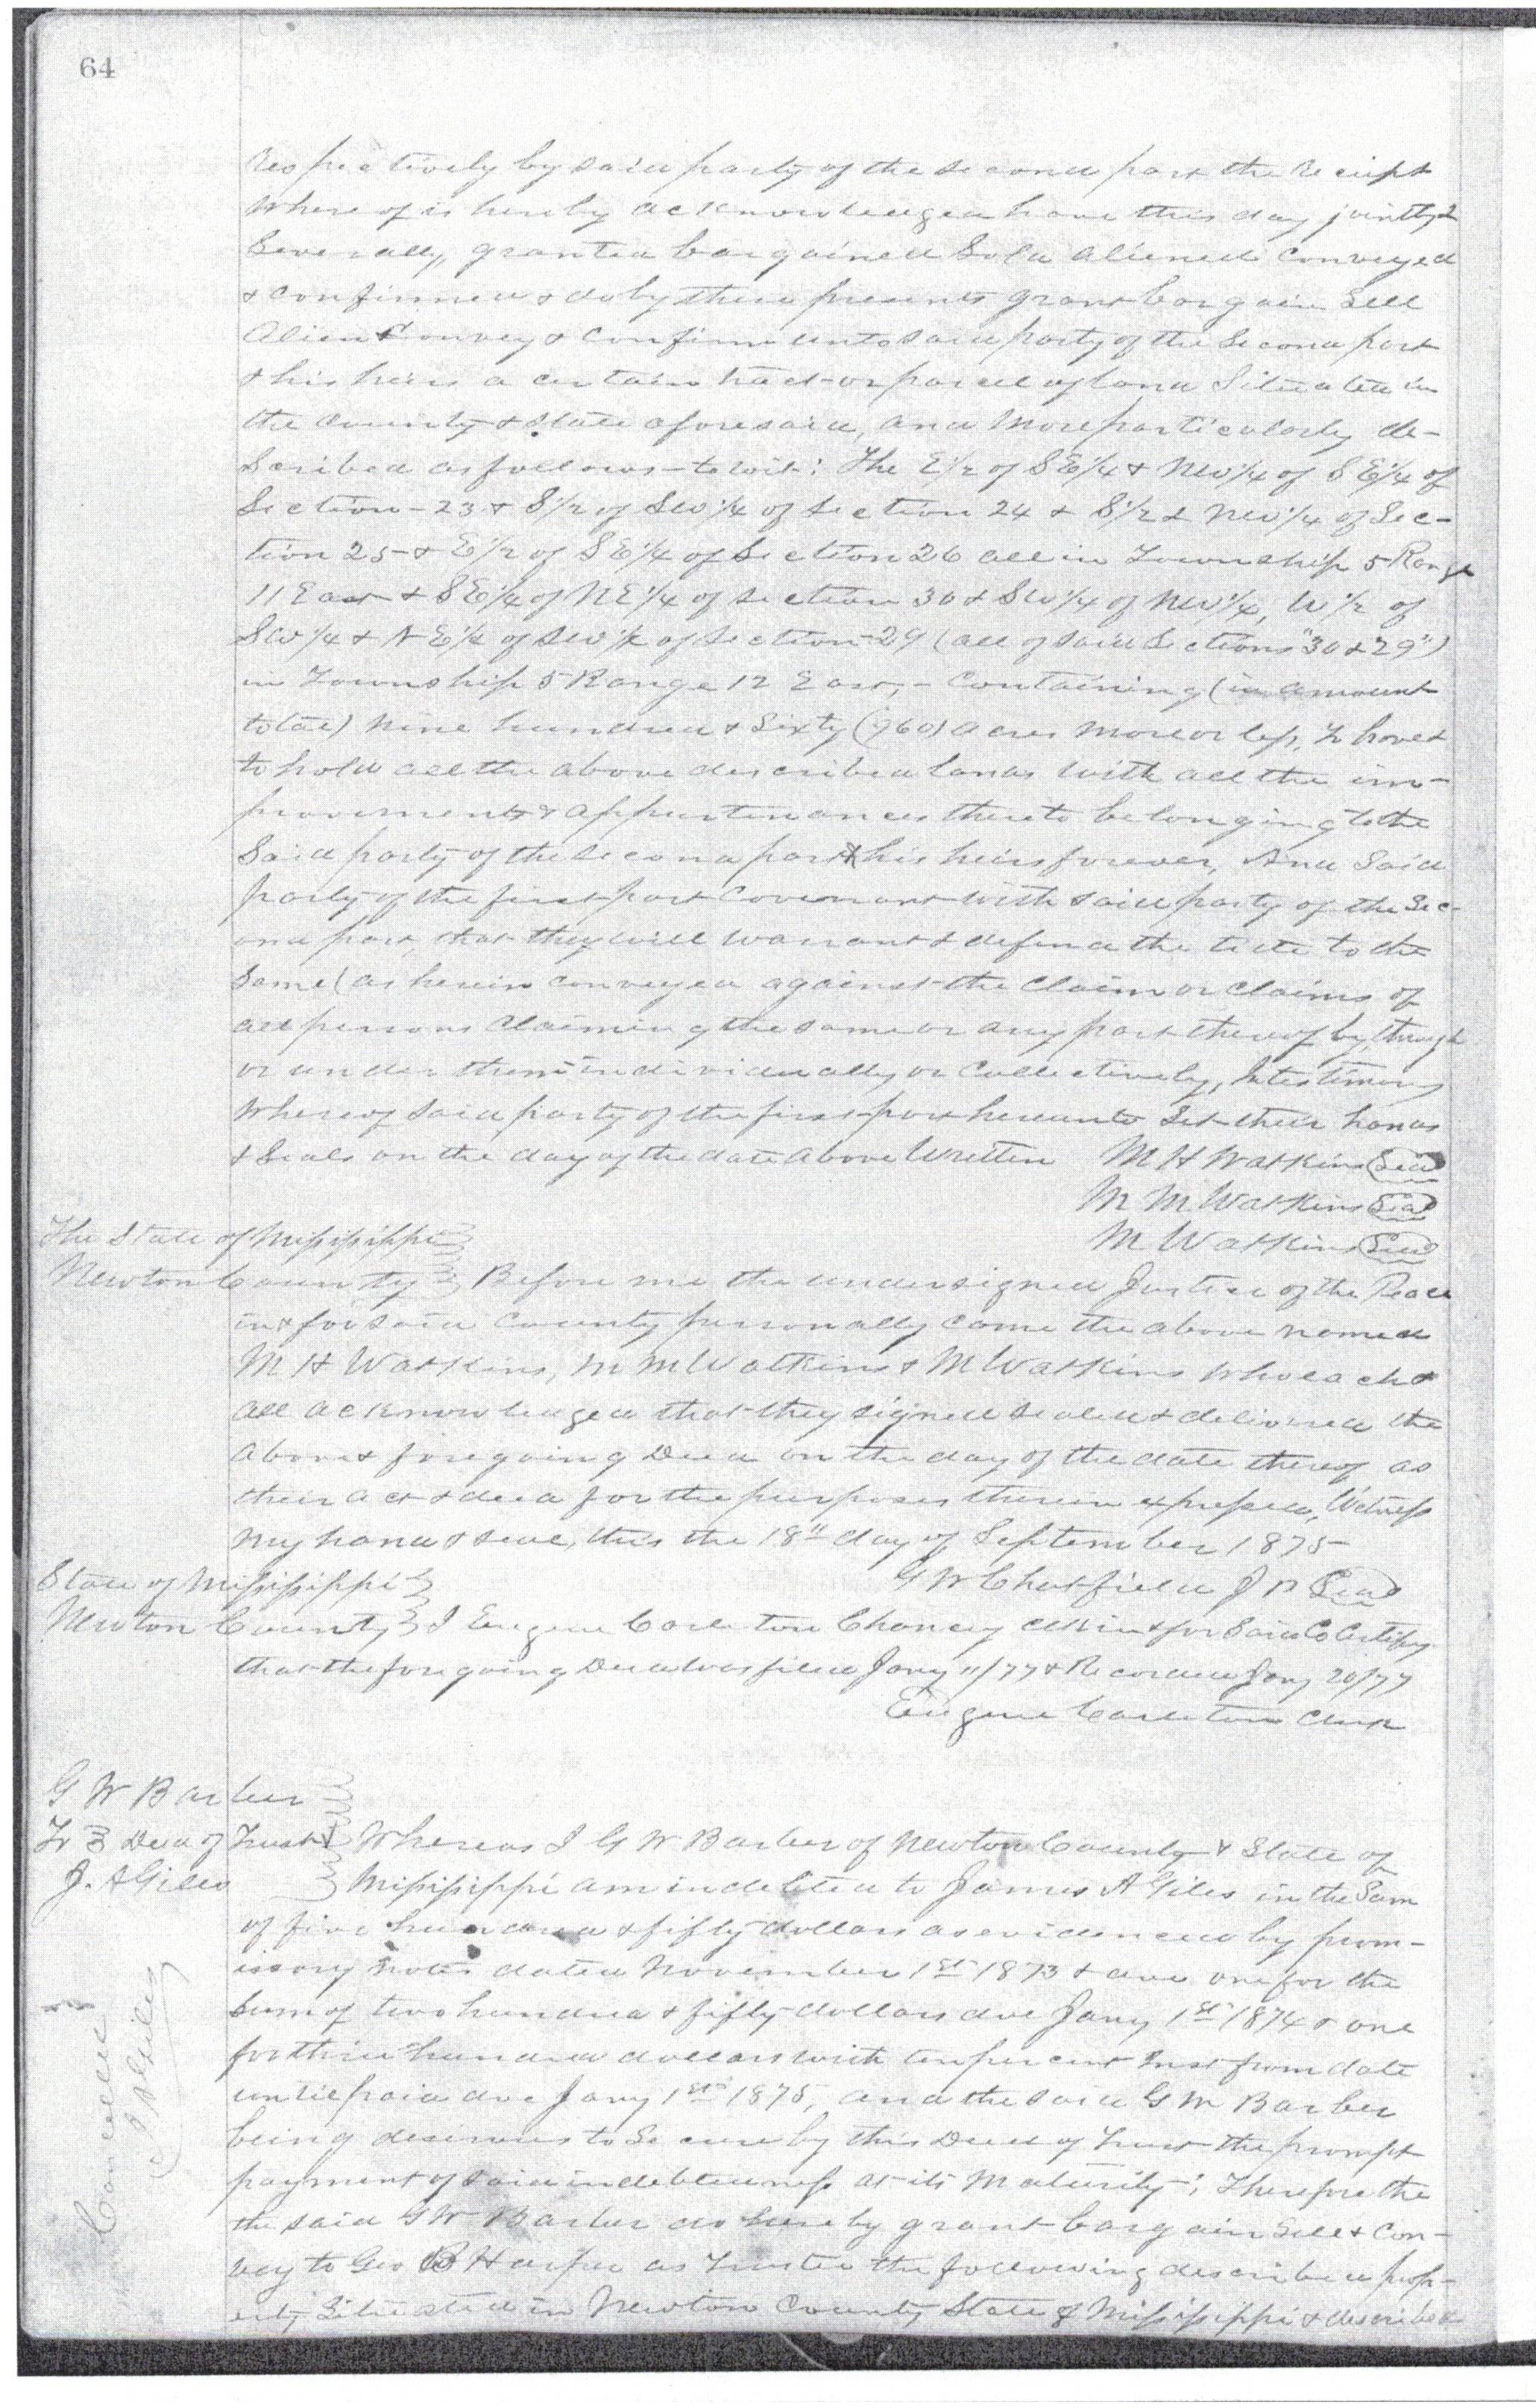 64
respectively by said party of the second part the receipt
Where of is hereby acknowledged have this day jointly &
Severally, granted bargained Sold aliened Conveyed
& confirmed & do by these presents grant bargain Sell
Alien Convey & Confirm unto said party of the Second part
& his heirs a certain tract or parcel of land Situated in
the County & State aforesaid, and More particularly de-
Scribed as follows to wit: The E 1/2 of S E 1/4 & NW 1/4 of S E 1/4 of
Section 23 & S 1/2 of SW 1/4 of Section 24 & S 1/2 & NW 1/4 of Sec-
tion 25 & E 1/2 of S E 1/4 of Section 26 all in Township 5 Range
11 East & S E 1/4 of N E 1/4 of Section 30 & SW 1/4 of NW 1/4, W 1/2 of
SW 1/4 & N E 1/4 of SW 1/4 of Section 29 (all of said Sections "30 & 29")
in Township 5 Range 12 East, - Containing (in amount
total) Nine hundred & Sixty (960) acres More or less, To have &
to hold all the above described lands With all the im-
provements & appurtenances thereto belonging to the
Said party of the Second part & his heirs forever, And Said
party of the first part Covenant with said party of the Sec-
ond part, that they will Warrant & defend the title to the
Same (as herein conveyed against the Claim or Claims of
all persons Claiming the same or any part thereof by, through
or under them individually or Collectively, In testimony
Whereof Said party of the first part hereunto Set their hands
& Seals on the day of the date above Written M H Watkins Seal
M M Watkins Seal
M Watkins Seal
The State of Mississippi
Newton County Before me the undersigned Justice of the Peace
in & for said County personally came the above named
M H Watkins, M M Watkins & M Watkins Who each &
all acknowledged that they signed sealed & delivered the
above & foregoing Deed on the day of the date thereof as
their act & deed for the purposes therein expressed, Witness
My hand & seal, this the 18th day of September 1875
G W Chatfield J P Seal
State of Mississippi
Newton County I Eugene Carleton Chancy Clk in & for Said Co Certify
that the foregoing Deed was filed Jany 11/77 & Recorded Jany 20/77
Eugene Carleton Clerk
G W Barber
To Deed of Trust Whereas I G W Barber of Newton County & State of
J. A Giles Mississippi am indebted to James A Giles in the Sum
of five hundred & fifty dollars as evidenced by prom-
issory notes dated November 1st 1873 & due one for the
Sum of two hundred & fifty dollars due Jany 1st 1874 & one
for three hundred dollars with ten per cent Inst from date
until paid due Jany 1st 1875, and the said G W Barber
being desirous to Secure by this Deed of Trust the prompt
payment of said indebtedness at its Maturity; Therefore the
the said G W Barber do hereby grant bargain Sell & Con-
vey to Geo B Harper as Trustee the following described prop-
erty Situated in Newton County State of Mississippi & described
Cancelled
J A Giles